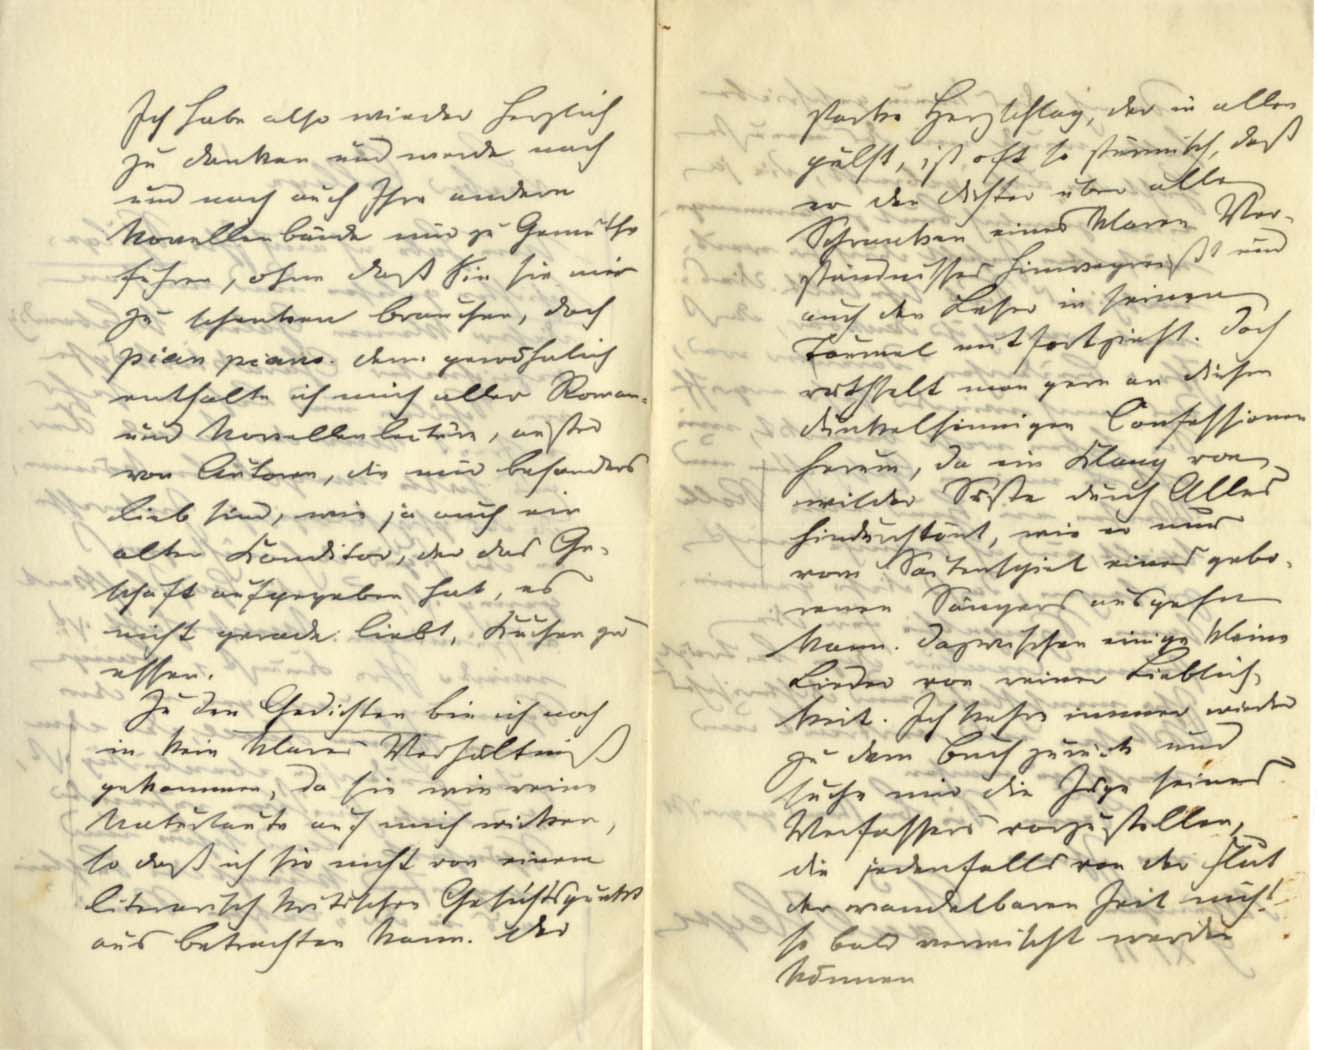 Ich habe also wieder herzlich
zu danken und werde nach
und nach auch Ihre andern
Novellenbände mir zu Gemüthe
führen, ohne daß Sie sie mir
zu schenken brauchen, doch
pian piano. denn gewöhnlich
enthalte ich mich aller Roman-
und Novellenlectüre, außer
von Autoren, die mir besonders
lieb sind, wie ja auch ein
alter Konditor, der das Ge-
schäft aufgegeben hat, es
nicht gerade liebt, Kuchen zu
essen.
Zu den Gedichten bin ich noch
in kein klares Verhältniß
gekommen, da sie wie reine
Naturlaute auf mich wirken,
so daß ich sie nicht von einem
literarisch kritischen Gesichtspunkte
aus betrachten kann. Der
starke Herzschlag, der in allen
pulst, ist oft so stürmisch, daß
er den Dichter über alle
Schranken eines klaren Ver-
ständnisses hinwegreißt und
auch den Leser in seinen
Taumel mit fortzieht. Doch
räthselt man gern an diesen
dunkelsinnigen Confessionen
herum, da ein Klang von
wilder Süße durch Alles
hindurchtönt, wie er nur
vom Saitenspiel eines gebo-
renen Sängers ausgehn
kann. Dazwischen einige kleine
Lieder von reiner Lieblich-
keit. Ich kehre immer wieder
zu dem Buch zurück und
suche mir die Züge seines
Verfassers vorzustellen,
die jedenfalls von der Flut
der wandelbaren Zeit nicht
so bald verwischt werden
können